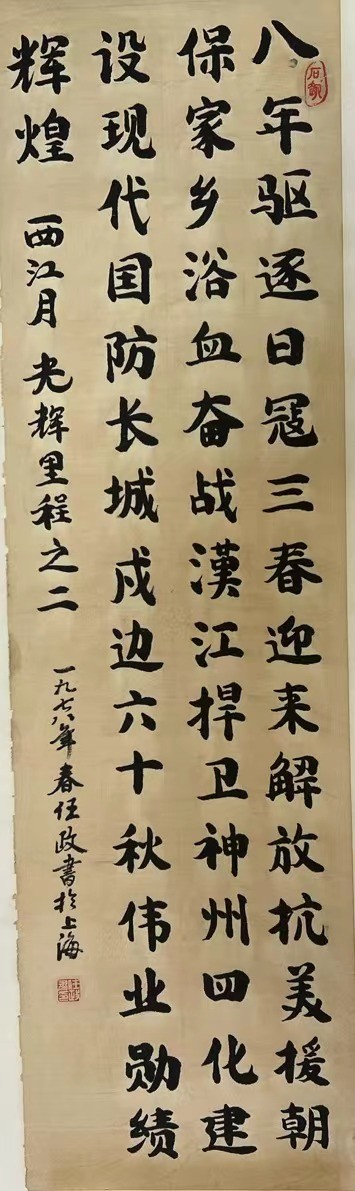 八年驱逐日寇三春迎来解放抗美援朝
保家乡浴血奋战漢江捍卫神州四化建
设现代国防长城戍边六十秋伟业勋绩
辉煌 西江月 光辉里程之二 一九七八年春任政書於上海